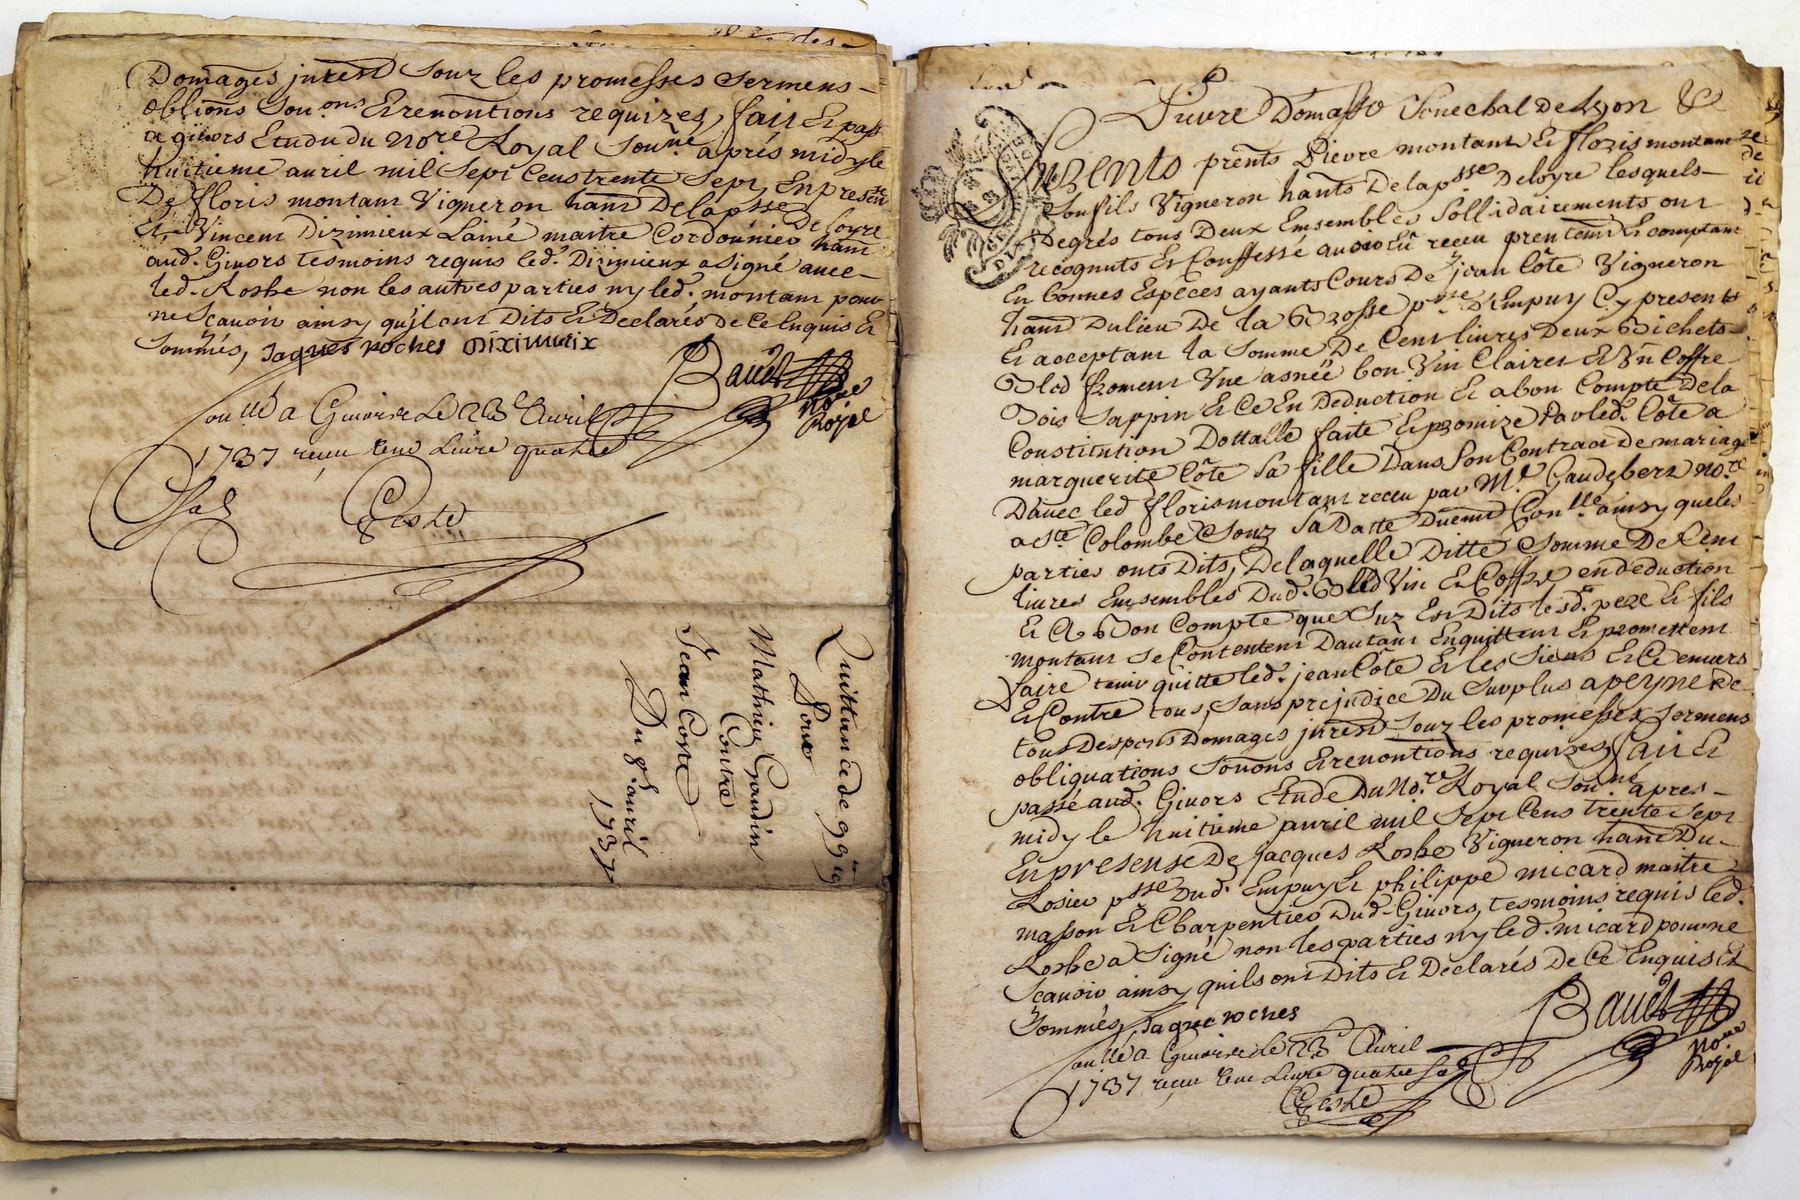 Domages jurent souz les promesses sermens
oblions soumons & renontions requizes, fait & passé
a givors Etude du nore Royal Sousne apres midy le
huitieme avril mil Sept Cens trente Sept, En presence
De floris montant Vigneron hant De lapsse De loyre
Et Vincent Dizimieux Lainé maitre Cordonnier hant
aud. Givors tesmoins requis led. Dizimieux a Signé avec
led. Roshe non les autres parties ny led. montant pour
ne Scavoir ainsy qu'ils ont Dits & Declarés de Ce Enquis &
Sommés, Jaques roches Diximieux
Baudt
nore
Royal
a Givors le 23e Avril
1737 receu Une Livre quatre
Sols
Quittance de 99tt 19
Pour
Mathieu Gaudin
Contre
Jean Coste
Du 8 avril
1737
Pierre Domasso Senechal de Lyon &
presents Pierre montant & floris montant
Son fils Vigneron hants De lapsse De loyre lesquels
Degrés tous Deux Ensembles Sollidairements ont
recognuts & Conffessé avoir Eu receu presentement comptant
En bonnes Espèces ayants Cours De jean Côte Vigneron
hant Du lieu De la Brosse psse D'Empuy Cy present
& acceptant la Somme De Cent livres Deux Bichets
Bled froment Une asnée bon Vin Clairet & Un Coffre
Bois Sappin & Ce En Deduction & a bon Compte De la
Constitution Dottalle faite & promize Par led. Côte a
marguerite Côte Sa fille Dans Son Contract de mariage
D'avec led floris montant receu par Me. Gaudebert nore
a Ste Colombe Souz Sa Datte Duemt Conlle ainsy que les
parties onts Dits, De laquelle Ditte Somme De Cent
livres Ensembles Dud. Bled Vin & Coffre en deduction
& A Bon Compte que Sus Est Dits lesd. pere & fils
montant se Contentent Dautant En quittent & promettent
faire tenir quitte led. jean Côte & les Siens & Ce envers
& Contre tous, Sans prejudice Du Surplus a peyne de
tous Despens Domages jurent Souz les promesses Sermens
obliguations Soumons & renontions requizes, fait &
passé aud. Givors Etude Du Nore Royal Sousne apres
midy le huitieme avril mil Sept Cens trente Sept
En presense De Jacques Roshe Vigneron hant Du
Rosier psse Dud. Empuy & philippe micard maitre
masson & Charpentier Dud. Givors, tesmoins requis led.
Roshe a Signé non les parties ny led. micard pour ne
Scavoir ainsy qu'ils ont Dits & Declarés De Ce Enquis &
Sommés, Jaque roches
Baudt
nore
Royal
a Givors le 23e Avril
1737 receu Une Livre quatre Sols